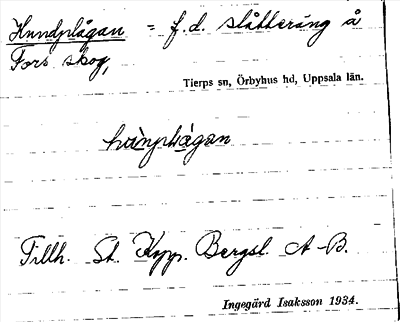 Hundplågan = f.d. slåtteräng å
Fors skog,
Tierps sn, Örbyhus hd, Uppsala län.
Tillh. St. Kopp. Bergsl. A-B.
Ingegärd Isaksson 1934.